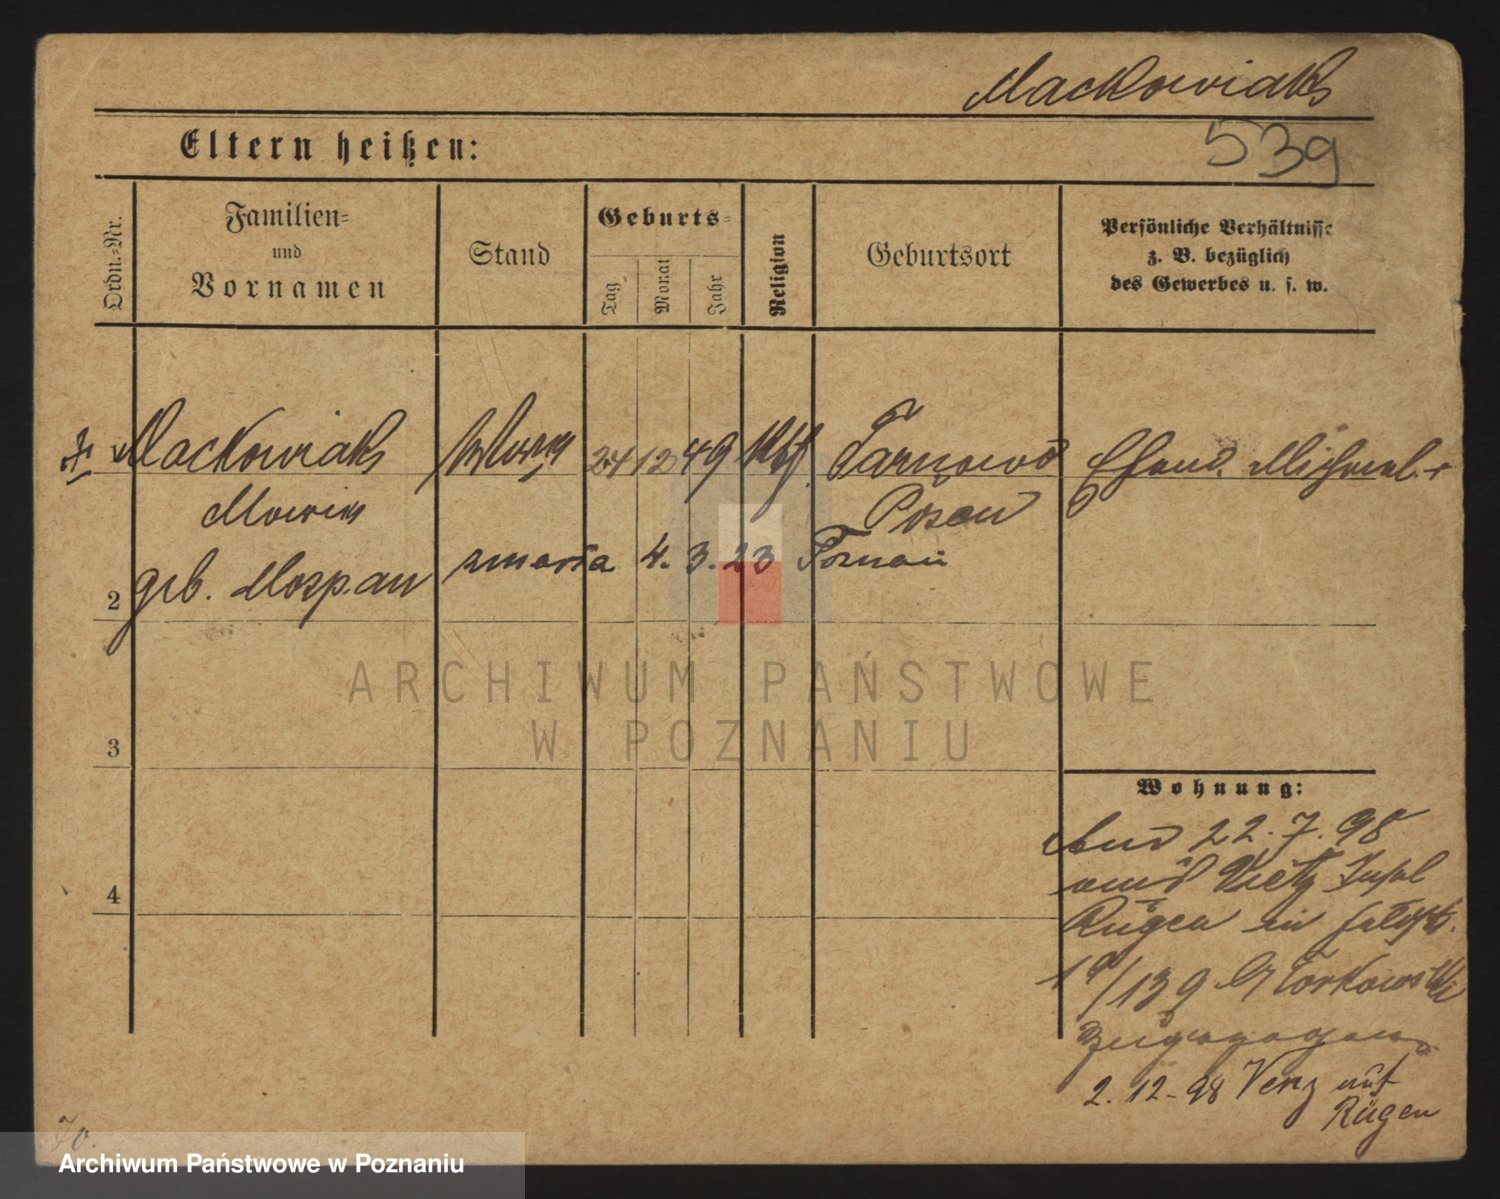 Mackowiak
539
Eltern heißen:
Ordn.-Nr.
Familien-
und
Vornamen
Stand
Geburts-
Tag
Monat
Jahr
Religion
Geburtsort
Persönliche Verhältnisse
z. B. bezüglich
des Gewerbes u. s. w.
Mackowiak 24 12 49 Tarnowo Ehem. Michael
Posen
zmarła 4. 3. 23 Poznań
2 geb.
3
Wohnung:
22. 7. 98
4
Rügen in
139
zugezogen
2. 12 - 98 Venz auf
Rügen
70.
ARCHIWUM PAŃSTWOWE
W POZNANIU
Archiwum Państwowe w Poznaniu